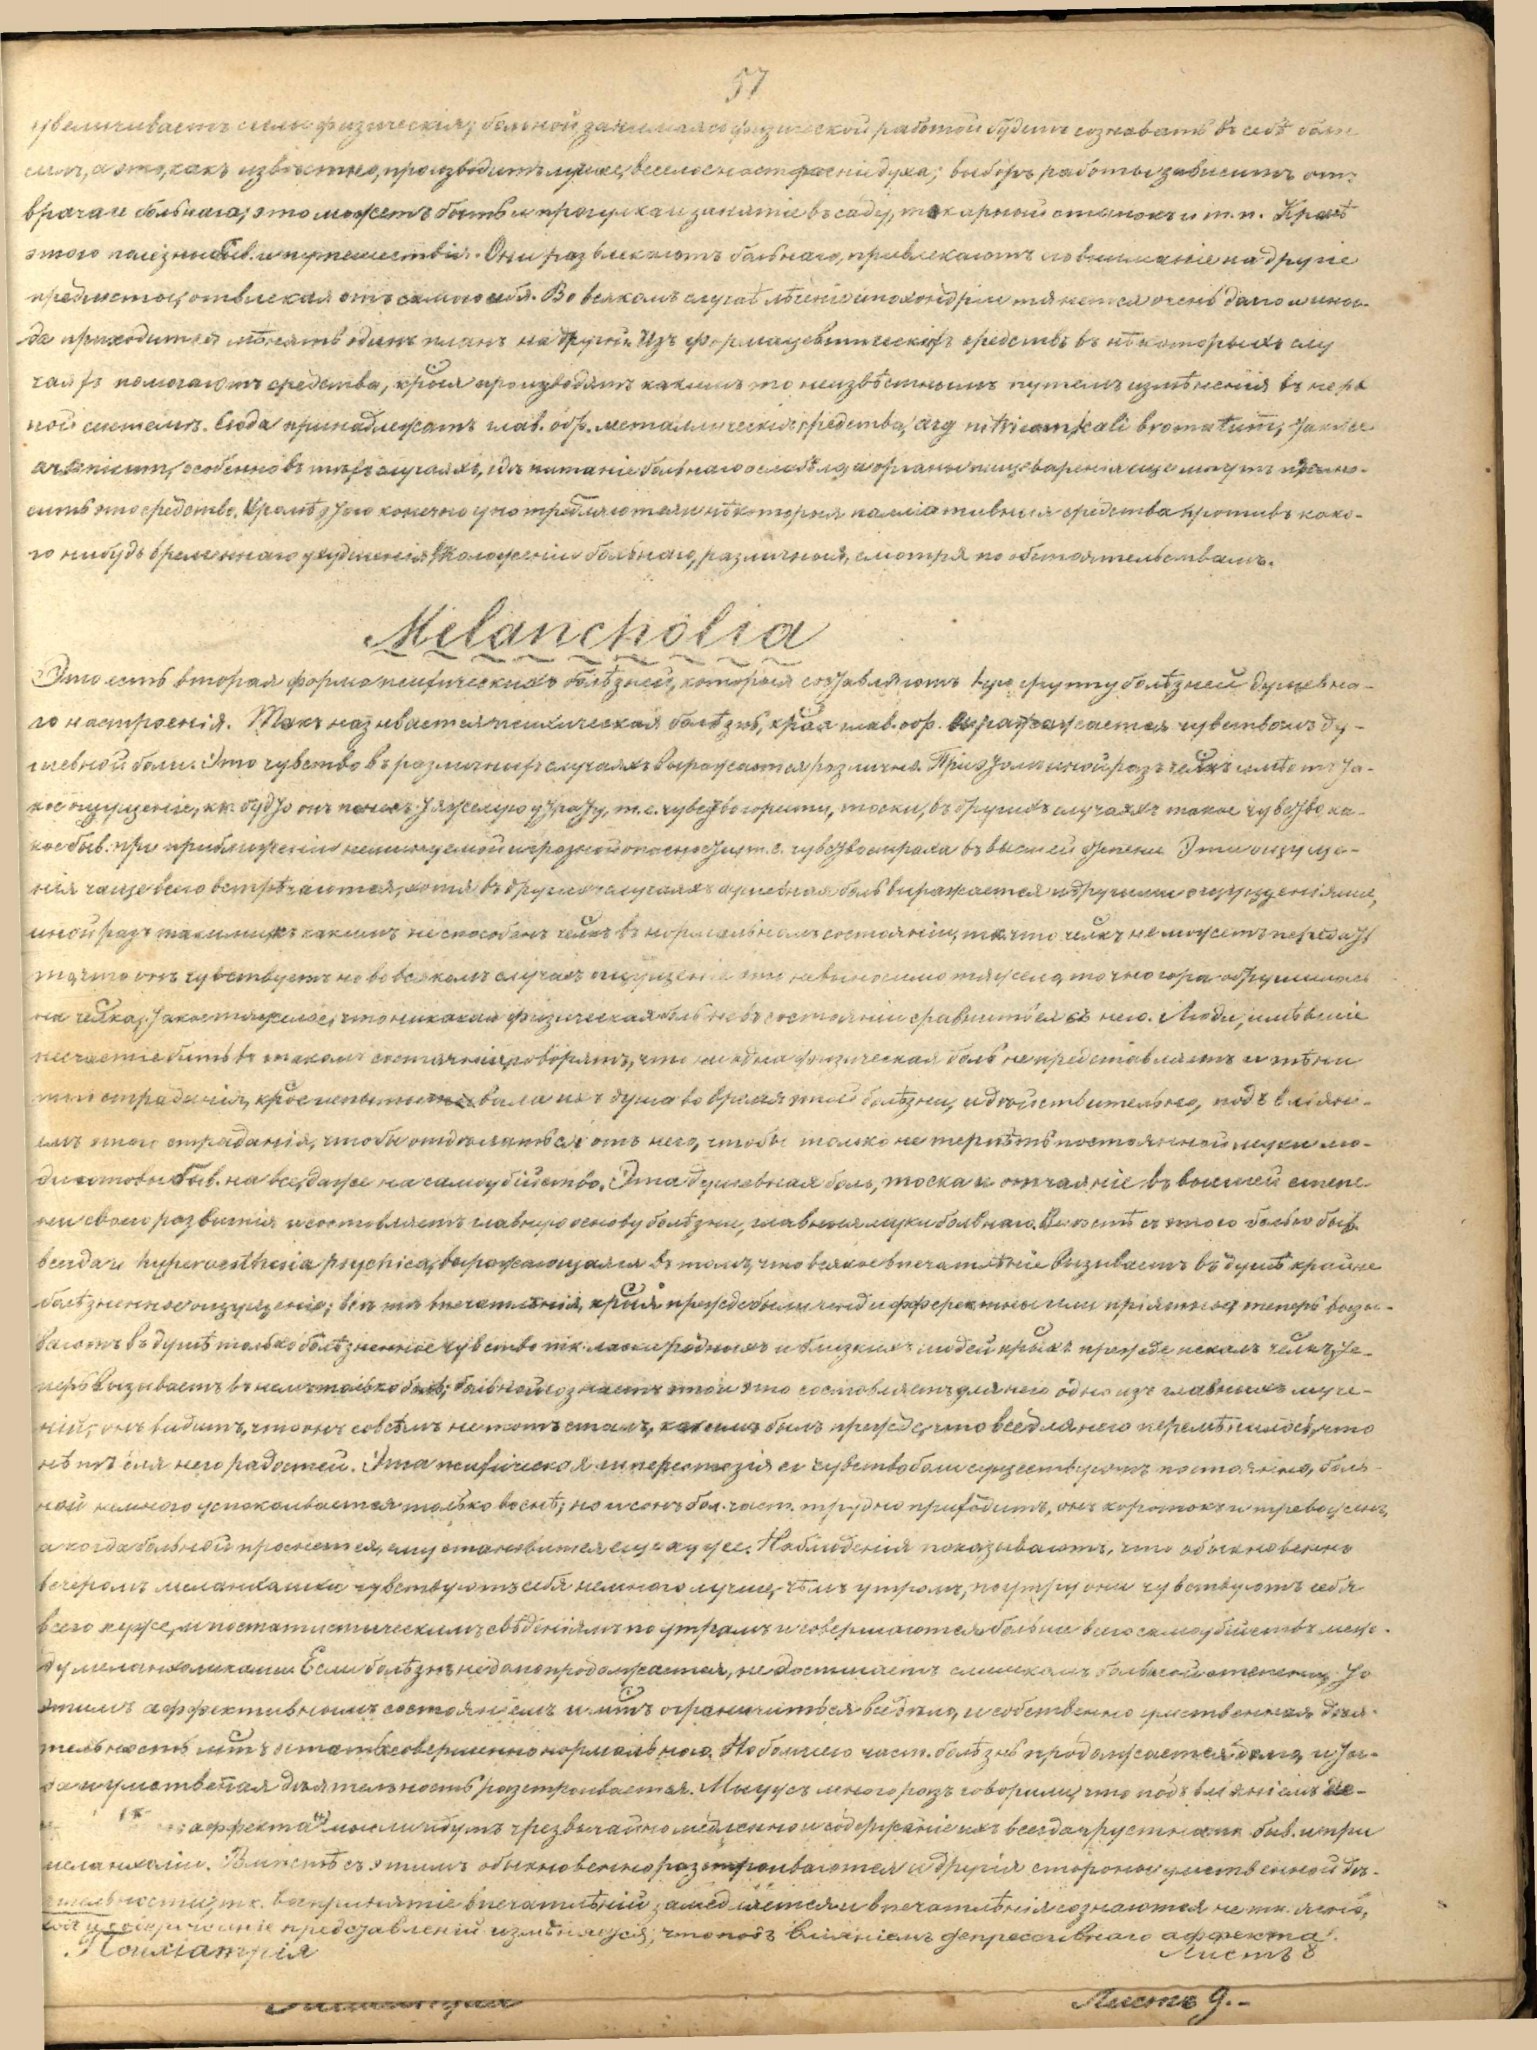 57
увеличиваетъ силы физическія; больной, занимаясь физической работой будетъ сознавать въ себѣ болѣе
силъ, а это, какъ извѣстно, производитъ лучшее, веселое настроеніе духа; выборъ работы зависитъ отъ
врача и больнаго; это можетъ быть и прогулка и занятіе въ саду, токарный станокъ и т. п. Кромѣ
этого полезны быв. и путешествія. Они развлекаютъ больнаго, привлекаютъ его вниманіе на другіе
предметы, отвлекая отъ самого себя. Во всякомъ случаѣ лѣченіе ипохондріи тянется очень долго и иног-
да приходится мѣнять одинъ планъ на другой. Изъ формацевтическихъ средствъ въ нѣкоторыхъ слу
чаяхъ помогаютъ средства, крыя производятъ какимъ то неизвѣстнымъ путемъ измѣненія въ нерв
ной системѣ. Сюда принадлежатъ глав. обр. металлическія средства, arg nitricum, kali bromatum, также
arsenicum, особенно въ тѣхъ случаяхъ, гдѣ питаніе больнаго ослабѣло, а органы пищеваренія еще могутъ перено-
сить это средство. Кромѣ этого конечно употребляются и нѣкоторыя палліативныя средства противъ како-
го нибудь временнаго ухудшенія въ положеніи больнаго, различныя, смотря по обстоятельствамъ.
Melancholia
Это есть вторая форма психическихъ болѣзней, которыя составляютъ 1ую группу болѣзней душевна-
го настроенія. Такъ называется психическая болѣзнь, края глав. обр. выражается чувствомъ ду-
шевной боли. Это чувство въ различныхъ случаяхъ выражается различно. При этомъ иной разъ челкъ имѣетъ та-
кое ощущеніе, кк. будто онъ понесъ тяжелую утрату, т. е. чувство горести, тоски, въ другихъ случаяхъ такое чувство ка-
кое быв. при приближеніи неминуемой и грозной опасности, т. е. чувство страха въ высшей степени. Эти ощуще-
нія чаще всего встрѣчаются, хотя въ другихъ случаяхъ душевная боль выражается и другими ощущеніями,
иной разъ такими, къ какимъ не способенъ челкъ въ нормальномъ состояніи, тк что челкъ не можетъ передать
то, что онъ чувствуетъ но во всякомъ случаѣ ощущеніе это невыносимо тяжело, точно гора обрушилась
на челка, такое тяжелое, что никакая физическая боль не въ состояніи сравниться съ нею. Люди, имѣвшіе
несчастіе быть въ такомъ состояніи, говорятъ, что ни одна физическая боль не представляетъ и тѣни
того страданія, крое испытывала ихъ душа во время этой болѣзни, и дѣйствительно, подъ вліяні-
емъ этого страданія, чтобы отдѣлаться отъ него, чтобы только не терпѣть постоянной муки лю-
ди готовы быв. на все, даже на самоубійство. Эта душевная боль, тоска и отчаяніе въ высшей степе
ни своего развитія и составляетъ главную основу болѣзни, главныя муки больнаго. Вмѣстѣ съ этою болью быв.
всегда и hyperaesthesia psychica, выражающаяся въ томъ, что всякое впечатлѣніе вызываетъ въ душѣ крайне
болѣзненное ощущеніе; всѣ тѣ впечатлѣнія, крыя прежде были индифферентны или пріятны, теперь вызы-
ваютъ въ душѣ только болѣзненное чувство тк. ласки родныхъ и близкихъ людей крыхъ прежде искалъ челкъ, те-
перь вызываетъ въ немъ только боль; больной сознаетъ это и это составляетъ для него одно изъ главныхъ муче-
ній; онъ видитъ, что онъ совсѣмъ не тотъ сталъ, какимъ былъ прежде, что все для него перемѣнилось, что
нѣтъ для него радостей. Эта психическая гиперестезія и чувство боли существуютъ постоянно, боль-
ной немного успокаивается только во снѣ; но и сонъ бол. част. трудно приходитъ, онъ коротокъ и тревоженъ,
а когда больной проснется, ему становится еще хуже. Наблюденія показываютъ, что обыкновенно
вечеромъ меланхолики чувствуютъ себя немного лучше, чѣмъ утромъ, поутру они чувствуютъ себя
всего хуже, и по статистическимъ свѣдѣніямъ по утрамъ и совершаются больше всего самоубійствъ меж-
ду меланхоликами. Если болѣзнь недолго продолжается, не достигаетъ слишкомъ большой степени, то
этимъ аффективнымъ состояніемъ и мтъ ограничиться все дѣло, и собственно умственная дѣя-
тельность мтъ остаться совершенно нормальною. Но большею част. болѣзнь продолжается долго, и тог-
да и умственная дѣятельность разстраивается. Мы ужъ много разъ говорили, что подъ вліяніемъ
аффекта мысли идутъ чрезвычайно медленно и содержаніе ихъ всегда грустное, тк быв. и при
меланхоліи. Вмѣстѣ съ этимъ обыкновенно разстраиваются и другія стороны умственной дѣ-
ятельности, тк. воспринятіе впечатлѣній замедляется и впечатлѣнія сознаются не тк. ясно,
содержаніе представленій измѣняется, что подъ вліяніемъ депрессивнаго аффекта.
Психіатрія Листъ 8
Листъ 9.-